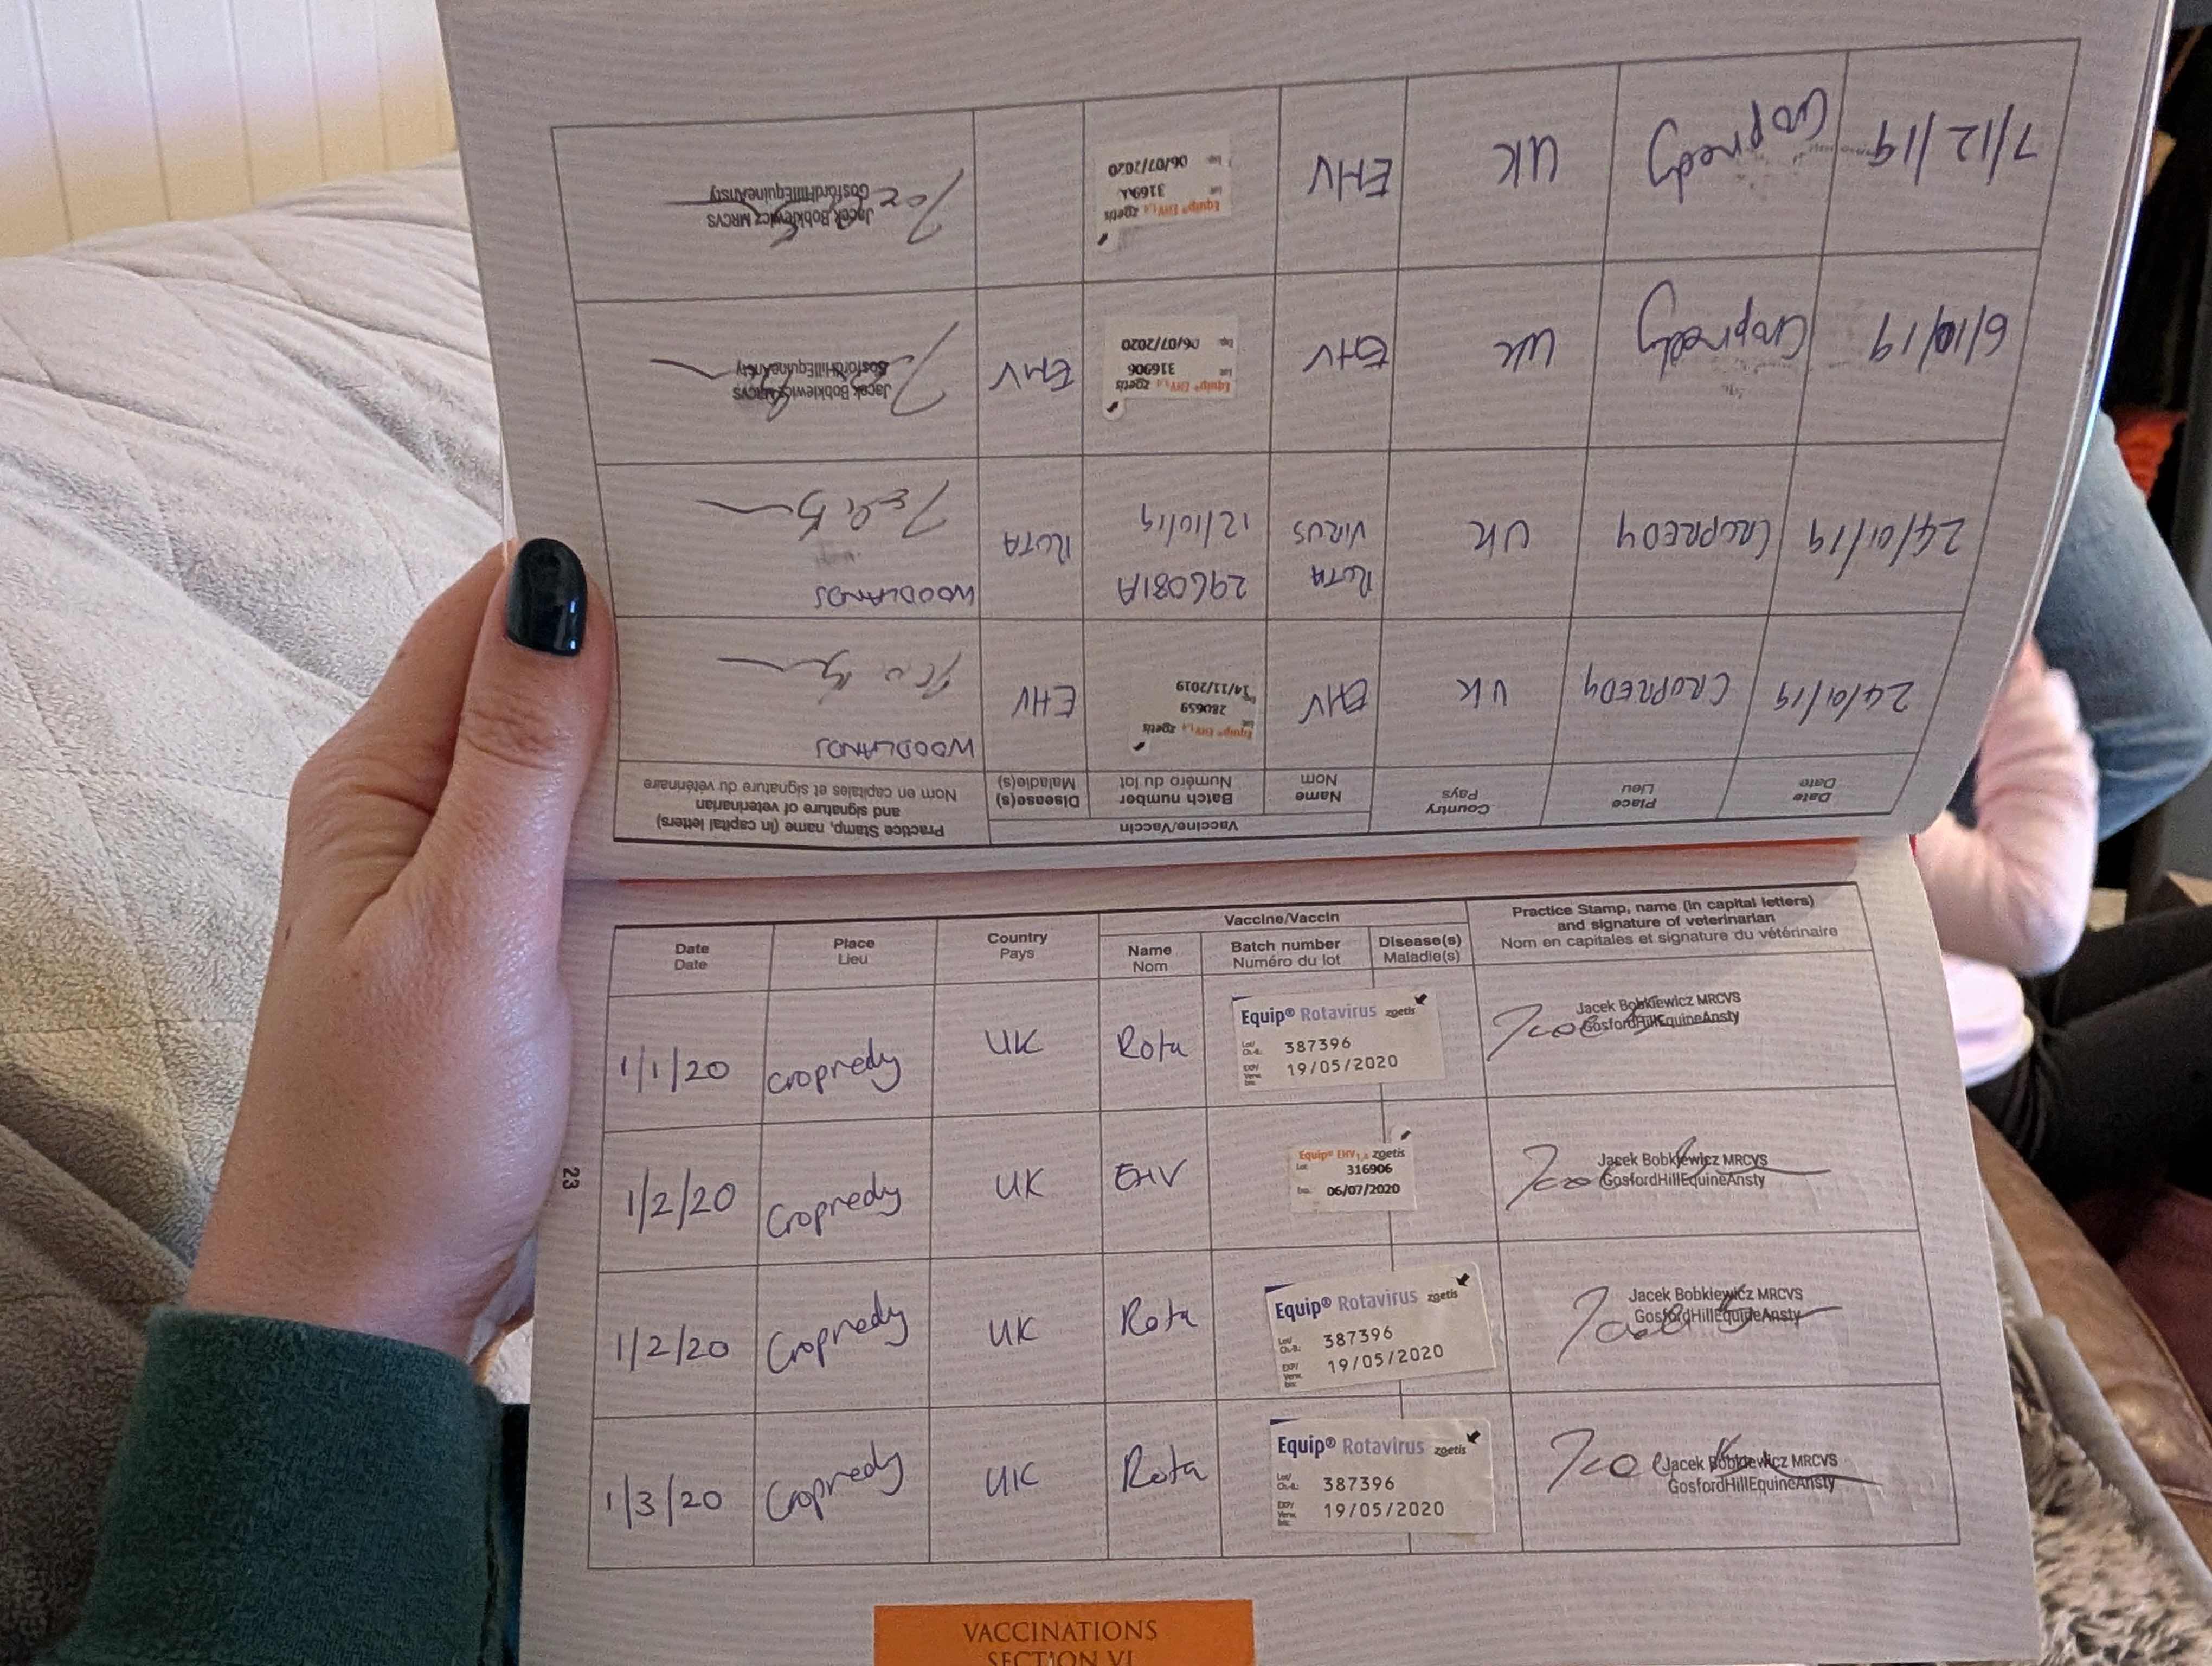 Date
Date
Place
Lieu
Country
Pays
Vaccine/Vaccin
Name
Nom
Batch number
Numéro du lot
Disease(s)
Maladie(s)
Practice Stamp, name (in capital letters)
and signature of veterinarian
Nom en capitales et signature du vétérinaire
24/01/19
CROPREDY
UK
EHV
Equip® EHV1,4 zoetis
Lot 280659
Exp. 14/11/2019
EHV
WOODLANDS
24/01/19
CROPREDY
UK
ROTA
VIRUS
296081A
12/10/19
ROTA
WOODLANDS
6/10/19
Cropredy
UK
EHV
Equip® EHV1,4 zoetis
Lot 316906
Exp. 06/07/2020
EHV
Jacek Bobkiewicz MRCVS
GosfordHillEquineAnsty
7/12/19
Cropredy
UK
EHV
Equip® EHV1,4 zoetis
Exp. 06/07/2020
Jacek Bobkiewicz MRCVS
GosfordHillEquineAnsty
Date
Date
Place
Lieu
Country
Pays
Vaccine/Vaccin
Name
Nom
Batch number
Numéro du lot
Disease(s)
Maladie(s)
Practice Stamp, name (in capital letters)
and signature of veterinarian
Nom en capitales et signature du vétérinaire
1/1/20
cropredy
UK
Rota
Equip® Rotavirus zoetis
Lot/ Ch.-B.: 387396
EXP/ Verw. bis: 19/05/2020
Jacek Bobkiewicz MRCVS
GosfordHillEquineAnsty
1/2/20
Cropredy
UK
EHV
Equip® EHV1,4 zoetis
Lot 316906
Exp. 06/07/2020
Jacek Bobkiewicz MRCVS
GosfordHillEquineAnsty
1/2/20
Cropredy
UK
Rota
Equip® Rotavirus zoetis
Lot/ Ch.-B.: 387396
EXP/ Verw. bis: 19/05/2020
Jacek Bobkiewicz MRCVS
GosfordHillEquineAnsty
1/3/20
Cropredy
UK
Rota
Equip® Rotavirus zoetis
Lot/ Ch.-B.: 387396
EXP/ Verw. bis: 19/05/2020
Jacek Bobkiewicz MRCVS
GosfordHillEquineAnsty
23
VACCINATIONS
SECTION VI